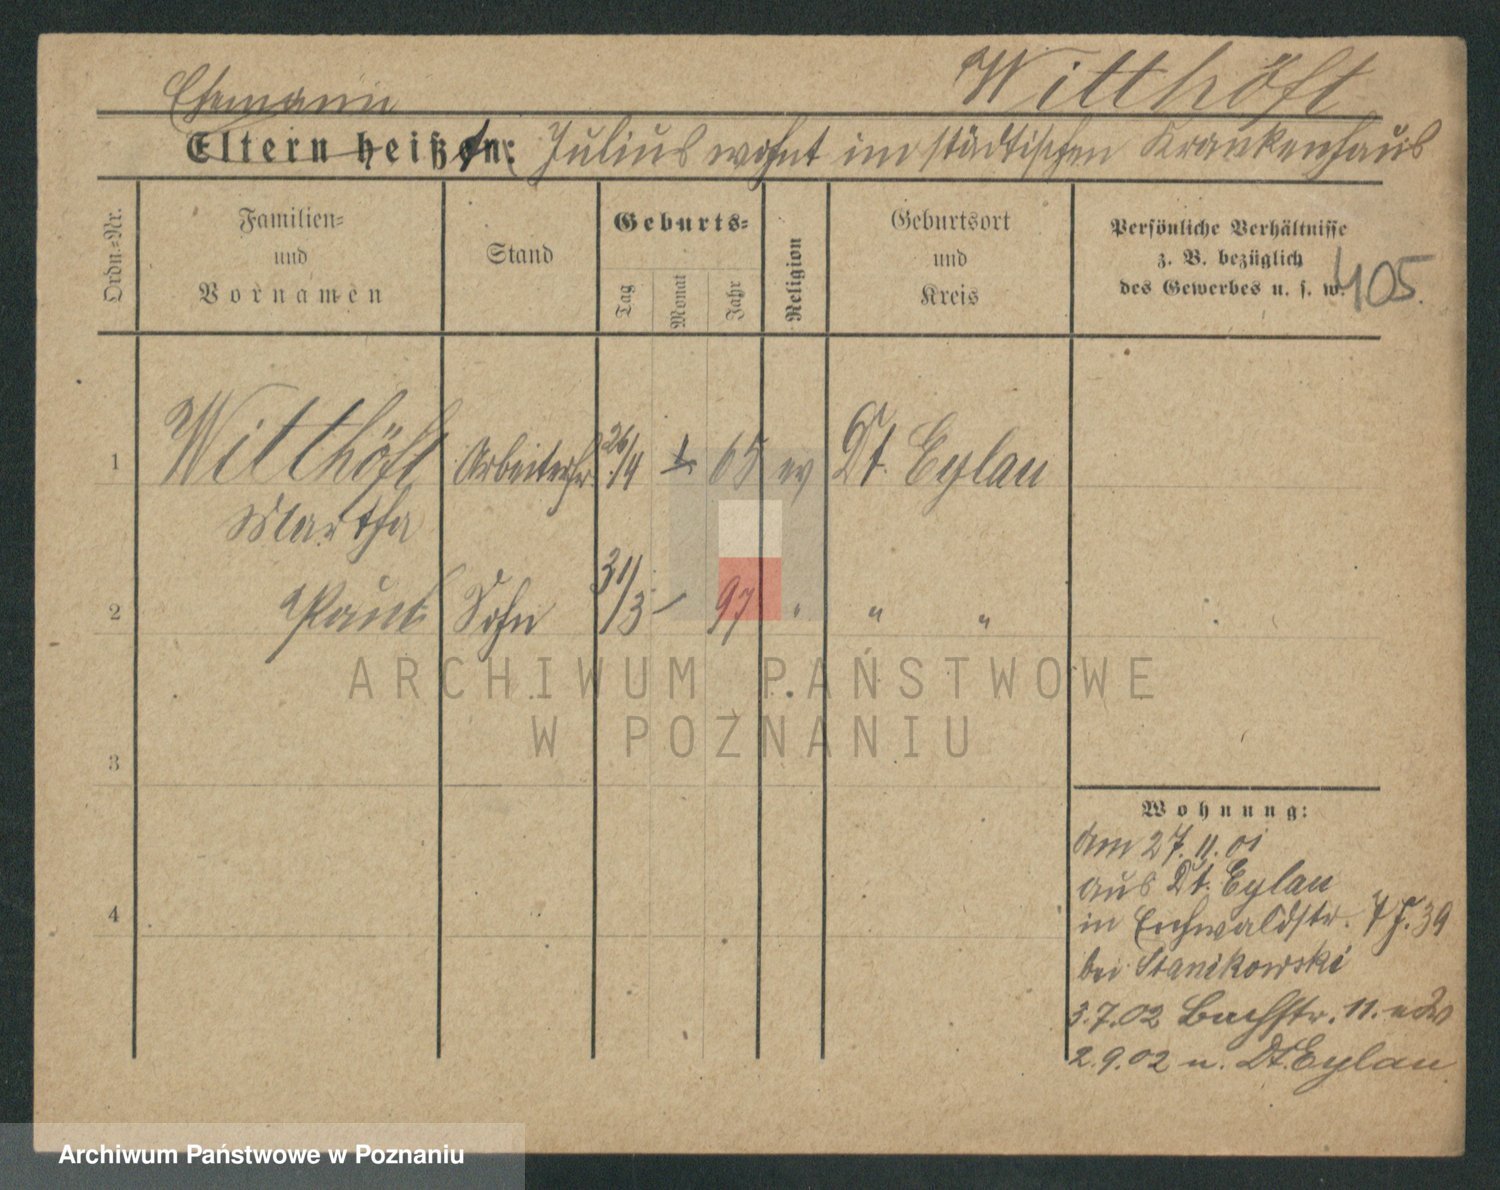 Witthöft
Ehemann
Eltern heißen: Julius wohnt im städtischen Krankenhaus
Ordn.-Nr.
Familien-
und
Vornamen
Stand
Geburts-
Tag
Monat
Jahr
Religion
Geburtsort
und
Kreis
Persönliche Verhältnisse
z. B. bezüglich
des Gewerbes u. s. w.
405.
1 Witthöft Arbeiterfr. 26/4 65 ev Dt. Eylau
Martha
2 Paul Sohn 31/3 — 97 " " "
3
4
Wohnung:
am 27.11.01
aus Dt. Eylau
in Eichwaldstr. 7 39
bei Stanikowski
3.7.02 Bachstr. 11.
2.9.02 n. Dt. Eylau
ARCHIWUM PAŃSTWOWE
W POZNANIU
Archiwum Państwowe w Poznaniu